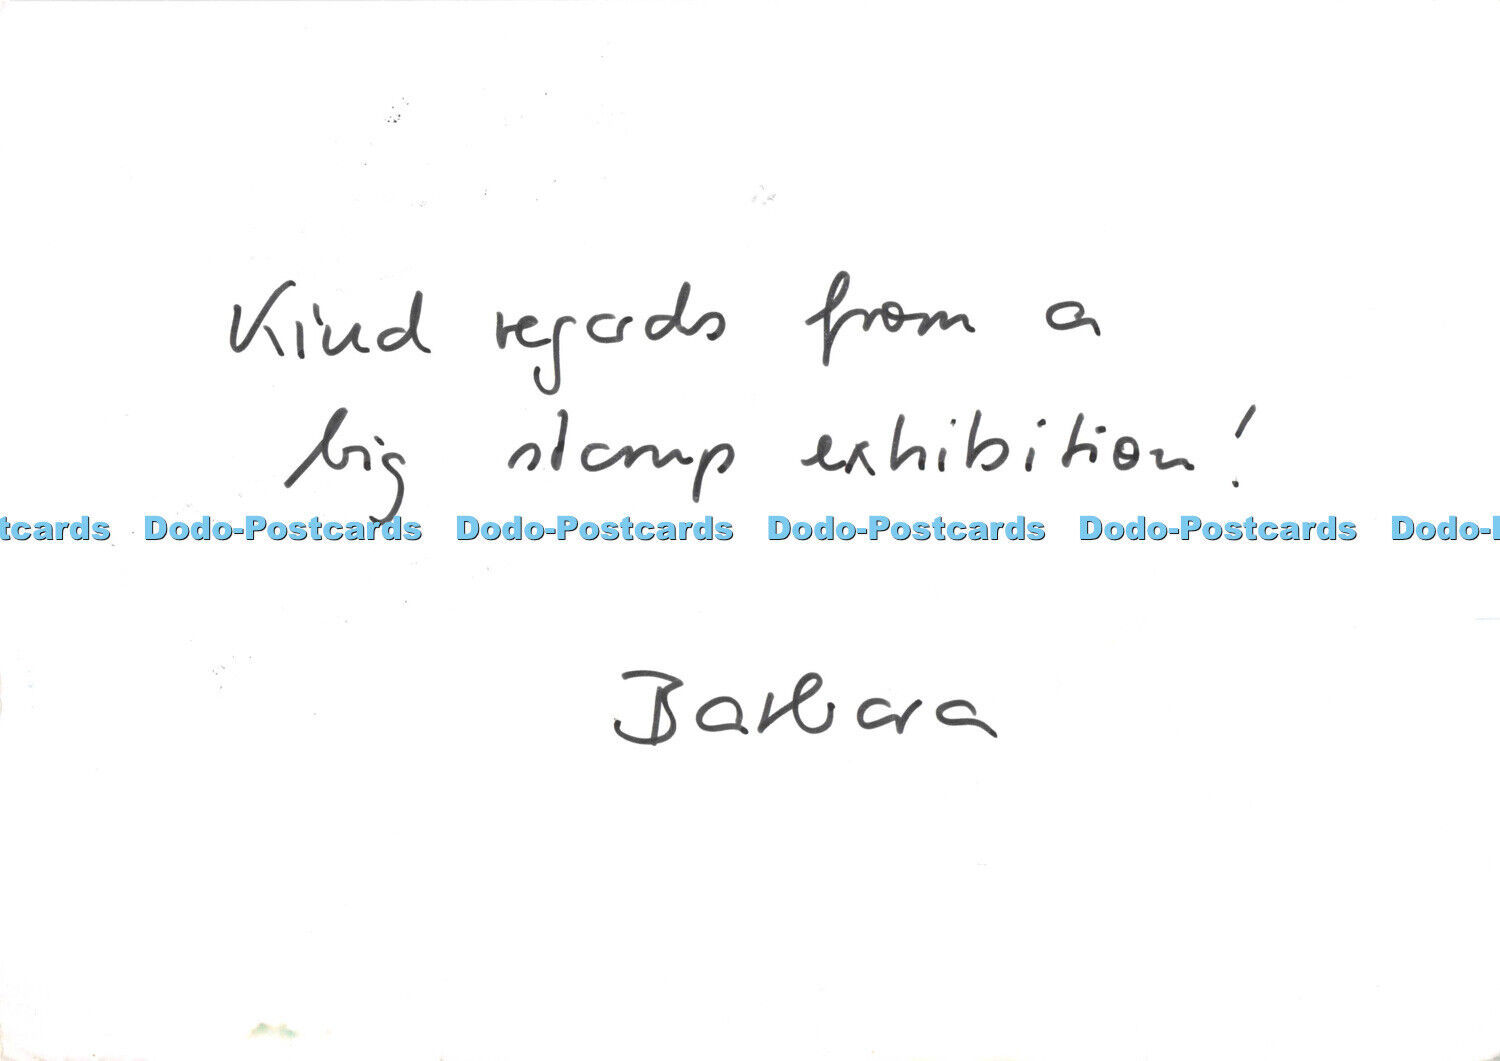 Kind regards from a
big stamp exhibition!
tcards Dodo-Postcards Dodo-Postcards Dodo-Postcards Dodo-Postcards Dodo-
Barbara